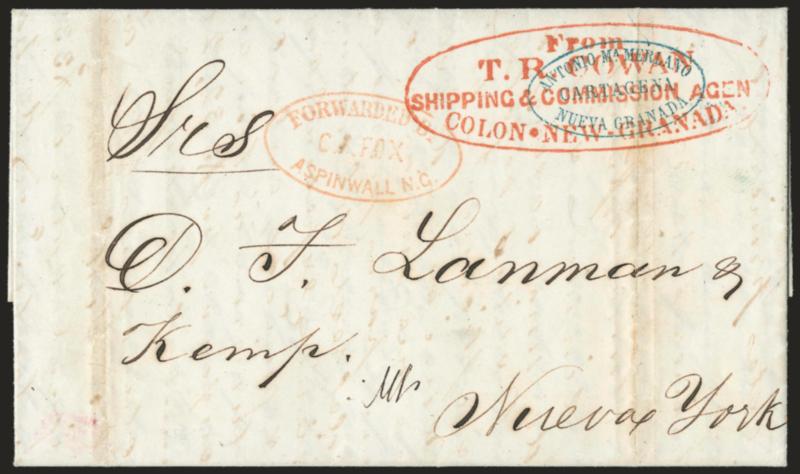 From
T. R. COWAN
SHIPPING & COMMISSION AGEN
COLON • NEW-GRANADA.
ANTONIO Mª MERLANO
CARTAGENA
NUEVA GRANADA
FORWARDED
FOX,
ASPINWALL N.G.
Srs
D. T. Lanman &
Kemp.
Nueva York